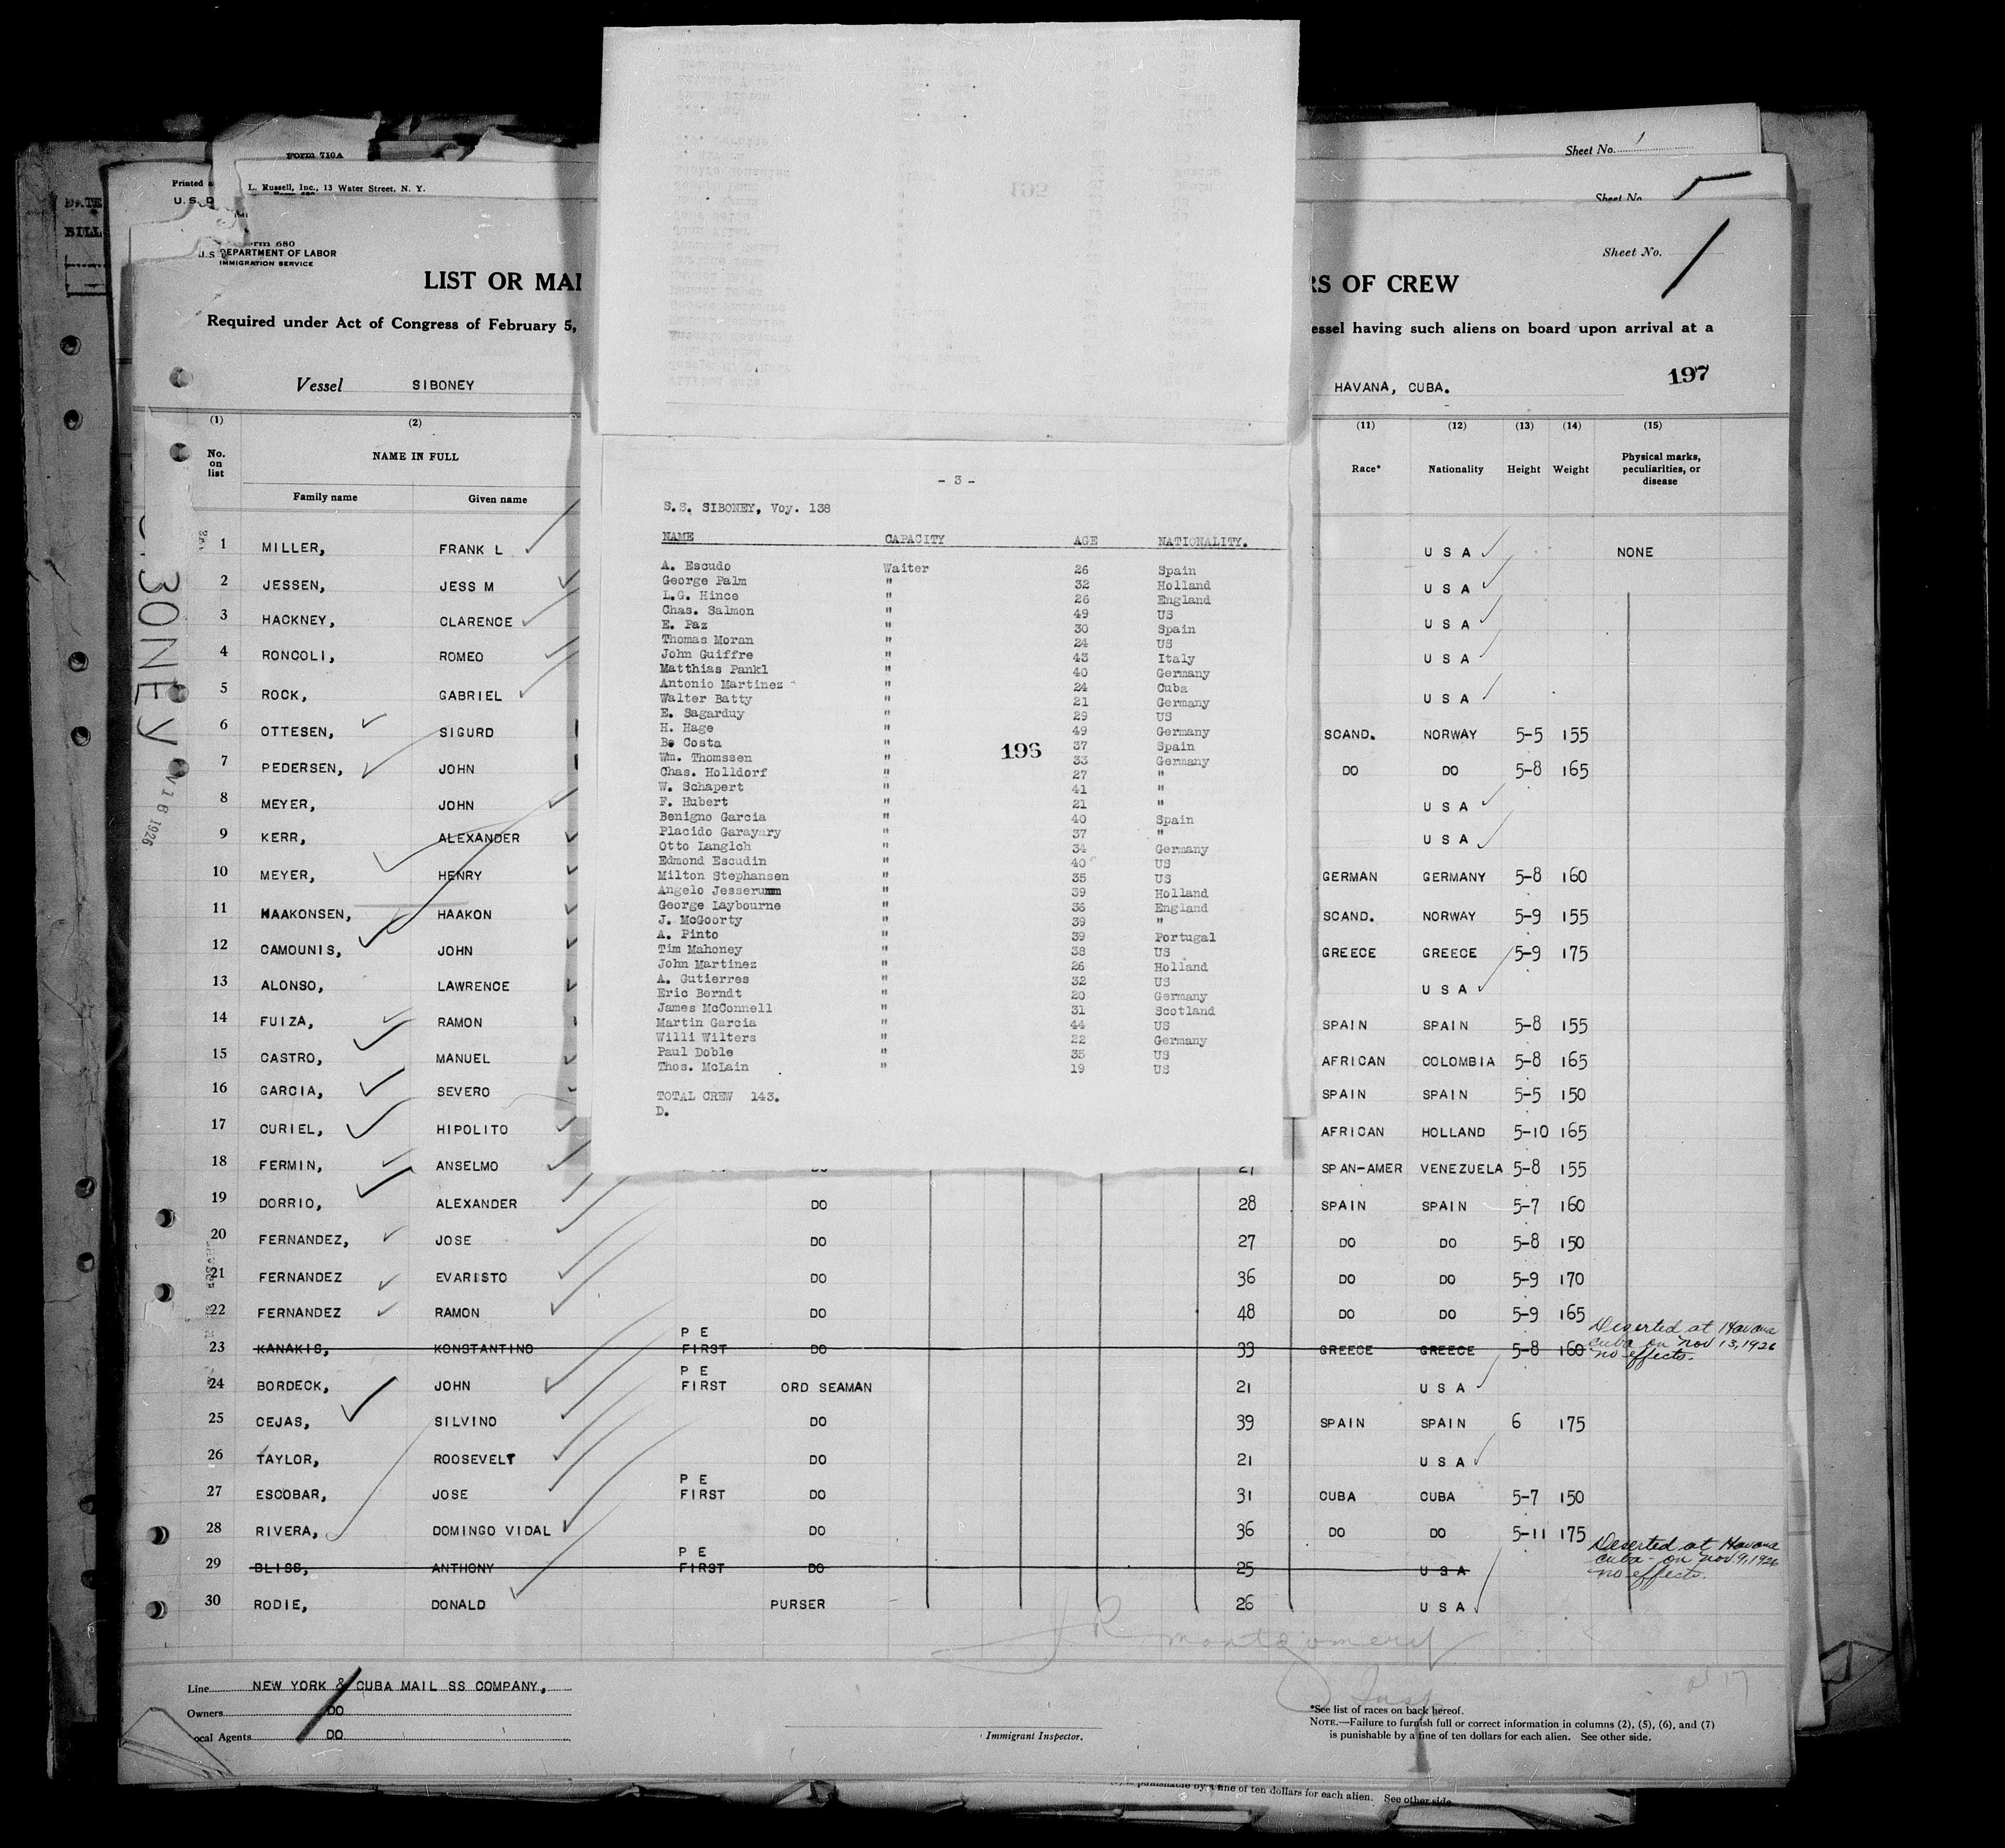 Form 710A
Sheet No. 1
Printed
L. Russell, Inc., 13 Water Street, N. Y.
U. S. D
Sheet No. 5
DATE
BILL
Form 680
U.S. DEPARTMENT OF LABOR
IMMIGRATION SERVICE
Sheet No. 1
LIST OR MAN
RS OF CREW
Required under Act of Congress of February 5,
essel having such aliens on board upon arrival at a
Vessel SIBONEY
HAVANA, CUBA.
197
195
(1) (2) (11) (12) (13) (14) (15)
No. on list NAME IN FULL Race* Nationality Height Weight Physical marks, peculiarities, or disease
Family name Given name
1 MILLER, FRANK L U S A NONE
2 JESSEN, JESS M U S A
3 HACKNEY, CLARENCE U S A
4 RONCOLI, ROMEO U S A
5 ROCK, GABRIEL U S A
6 OTTESEN, SIGURD SCAND. NORWAY 5-5 155
7 PEDERSEN, JOHN DO DO 5-8 165
8 MEYER, JOHN U S A
9 KERR, ALEXANDER U S A
10 MEYER, HENRY GERMAN GERMANY 5-8 160
11 HAAKONSEN, HAAKON SCAND. NORWAY 5-9 155
12 CAMOUNIS, JOHN GREECE GREECE 5-9 175
13 ALONSO, LAWRENCE U S A
14 FUIZA, RAMON SPAIN SPAIN 5-8 155
15 CASTRO, MANUEL AFRICAN COLOMBIA 5-8 165
16 GARCIA, SEVERO SPAIN SPAIN 5-5 150
17 CURIEL, HIPOLITO AFRICAN HOLLAND 5-10 165
18 FERMIN, ANSELMO DO 27 SPAN-AMER VENEZUELA 5-8 155
19 DORRIO, ALEXANDER DO 28 SPAIN SPAIN 5-7 160
20 FERNANDEZ, JOSE DO 27 DO DO 5-8 150
21 FERNANDEZ EVARISTO DO 36 DO DO 5-9 170
22 FERNANDEZ RAMON DO 48 DO DO 5-9 165
23 KANAKIS, KONSTANTINO P E FIRST DO 33 GREECE GREECE 5-8 160 Deserted at Havana Cuba on Nov 13, 1926 no effects.
24 BORDECK, JOHN P E FIRST ORD SEAMAN 21 U S A
25 CEJAS, SILVINO DO 39 SPAIN SPAIN 6 175
26 TAYLOR, ROOSEVELT DO 21 U S A
27 ESCOBAR, JOSE P E FIRST DO 31 CUBA CUBA 5-7 150
28 RIVERA, DOMINGO VIDAL DO 36 DO DO 5-11 175
29 BLISS, ANTHONY P E FIRST DO 25 U S A Deserted at Havana Cuba - on Nov 9, 1926 no effects.
30 RODIE, DONALD PURSER 26 U S A
- 3 -
S.S. SIBONEY, Voy. 138
NAME CAPACITY AGE NATIONALITY.
A. Escudo Waiter 26 Spain
George Palm " 32 Holland
L.G. Hince " 26 England
Chas. Salmon " 49 US
E. Paz " 30 Spain
Thomas Moran " 24 US
John Guiffre " 43 Italy
Matthias Pankl " 40 Germany
Antonio Martinez " 24 Cuba
Walter Batty " 21 Germany
E. Sagarduy " 29 US
H. Hage " 49 Germany
Be Costa " 37 Spain
Wm. Thomssen " 33 Germany
Chas. Holldorf " 27 "
W. Schapert " 41 "
F. Hubert " 21 "
Benigno Garcia " 40 Spain
Placido Garayary " 37 "
Otto Langlch " 34 Germany
Edmond Escudin " 40 US
Milton Stephansen " 35 US
Angelo Jesserumm " 39 Holland
George Laybourne " 36 England
J. McGoorty " 39 "
A. Pinto " 39 Portugal
Tim Mahoney " 38 US
John Martinez " 26 Holland
A. Gutierres " 32 US
Eric Berndt " 20 Germany
James McConnell " 31 Scotland
Martin Garcia " 44 US
Willi Wilters " 22 Germany
Paul Doble " 35 US
Thos. McLain " 19 US
196
TOTAL CREW 143.
D.
BONEY
V 16 1926
J R Montgomery
Insp
Line NEW YORK & CUBA MAIL SS COMPANY,
Owners DO
ocal Agents DO
Immigrant Inspector.
*See list of races on back hereof.
NOTE.—Failure to furnish full or correct information in columns (2), (5), (6), and (7)
is punishable by a fine of ten dollars for each alien. See other side.
is punishable by a fine of ten dollars for each alien. See other side.